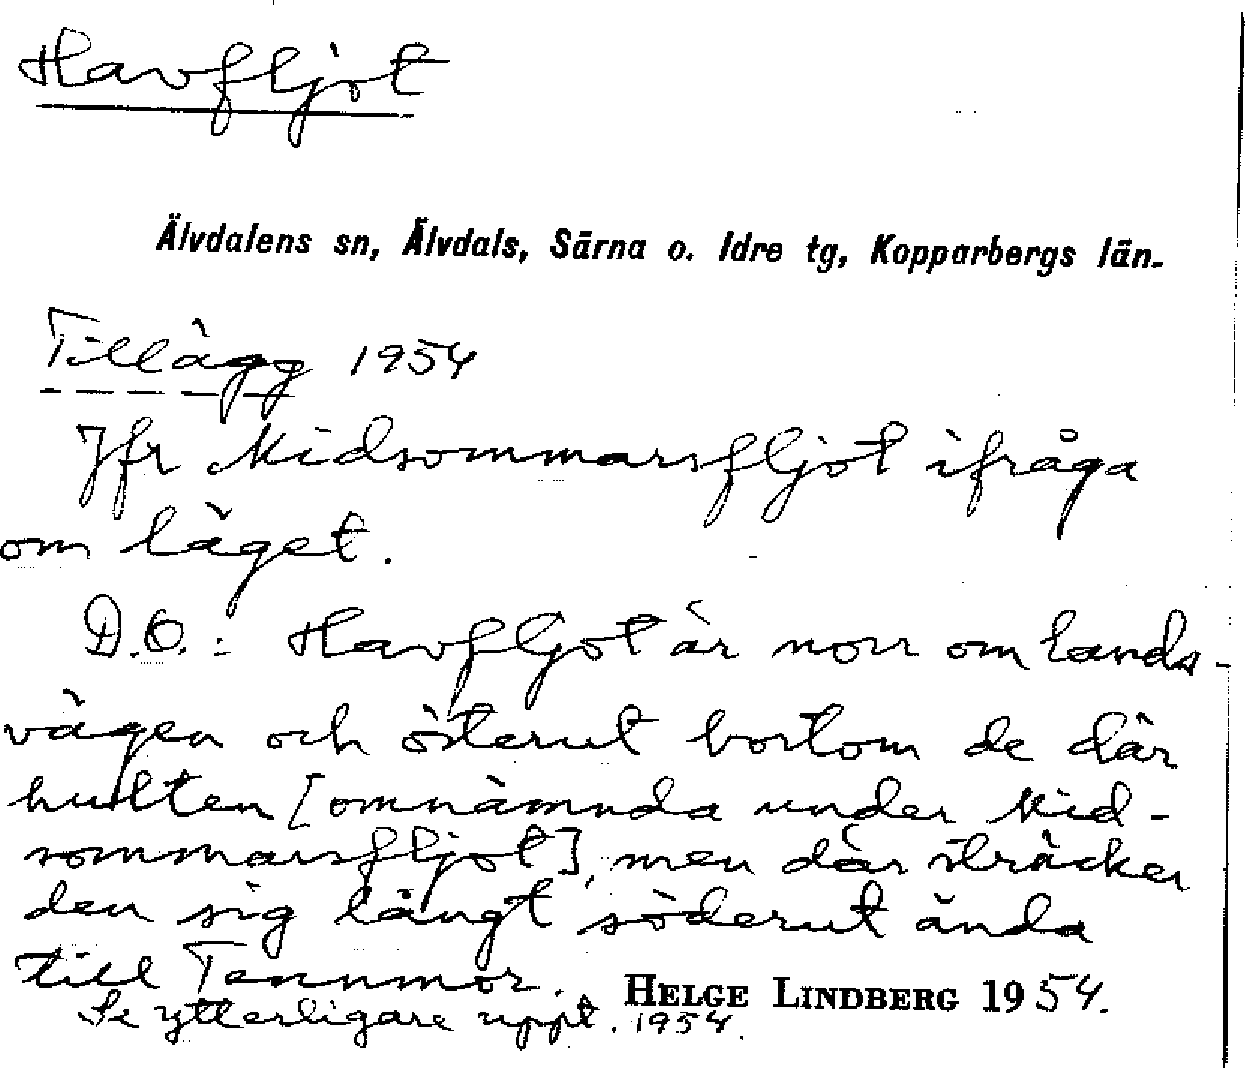 Havfljot
Älvdalens sn, Älvdals, Särna o. Idre tg, Kopparbergs län.
Tillägg 1954
Jfr Midsommarsfljot ifråga
om läget.
D.O.: Havfljot är norr om lands-
vägen och österut bortom de där
hulten [omnämnda under Mid-
sommarsfljot], men där sträcker
den sig långt söderut ända
till Tennmor.
HELGE LINDBERG 1954.
Se ytterligare uppt. 1954.